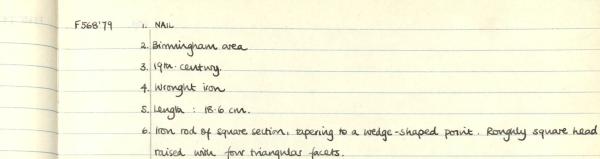 F568'79 1. NAIL
2. Birmingham area
3. 19th. century.
4. Wrought iron
5. Length : 18.6 cm.
6. Iron rod of square section, tapering to a wedge-shaped point. Roughly square head
raised with four triangular facets.